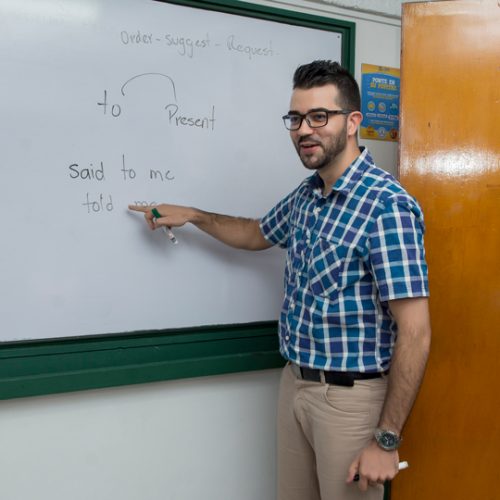 Order - suggest - Request -
to Present
said to me
told me
PONTE EN